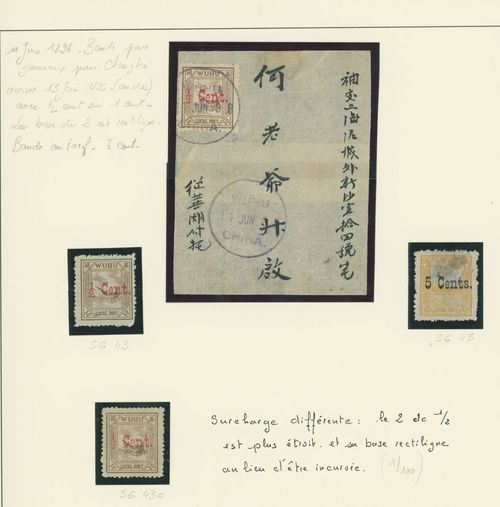 11 Juin 1896. Bande pour
journaux pour Changhai
arrivée 13 Juin 1896 (au dos)
avec ½ cent sur 1 cent.
La base du 2 est rectiligne.
Bande au tarif ½ cent
WUHU
½ Cent.
LOCAL POST
JUN 96
CHINA.
WUHU
11 JUN
CHINA.
袖交上海法城外新沙壹拾四號宅
何老爺升啟
從蕪湖付托
WUHU
½ Cent.
LOCAL POST
SG 43
WUHU
5 Cents.
LOCAL POST
SG 45
WUHU
½ Cent.
LOCAL POST
SG 43a
Surcharge différente : le 2 de ½
est plus étroit. et sa base rectiligne
au lieu d'être incurvée. (1/100)